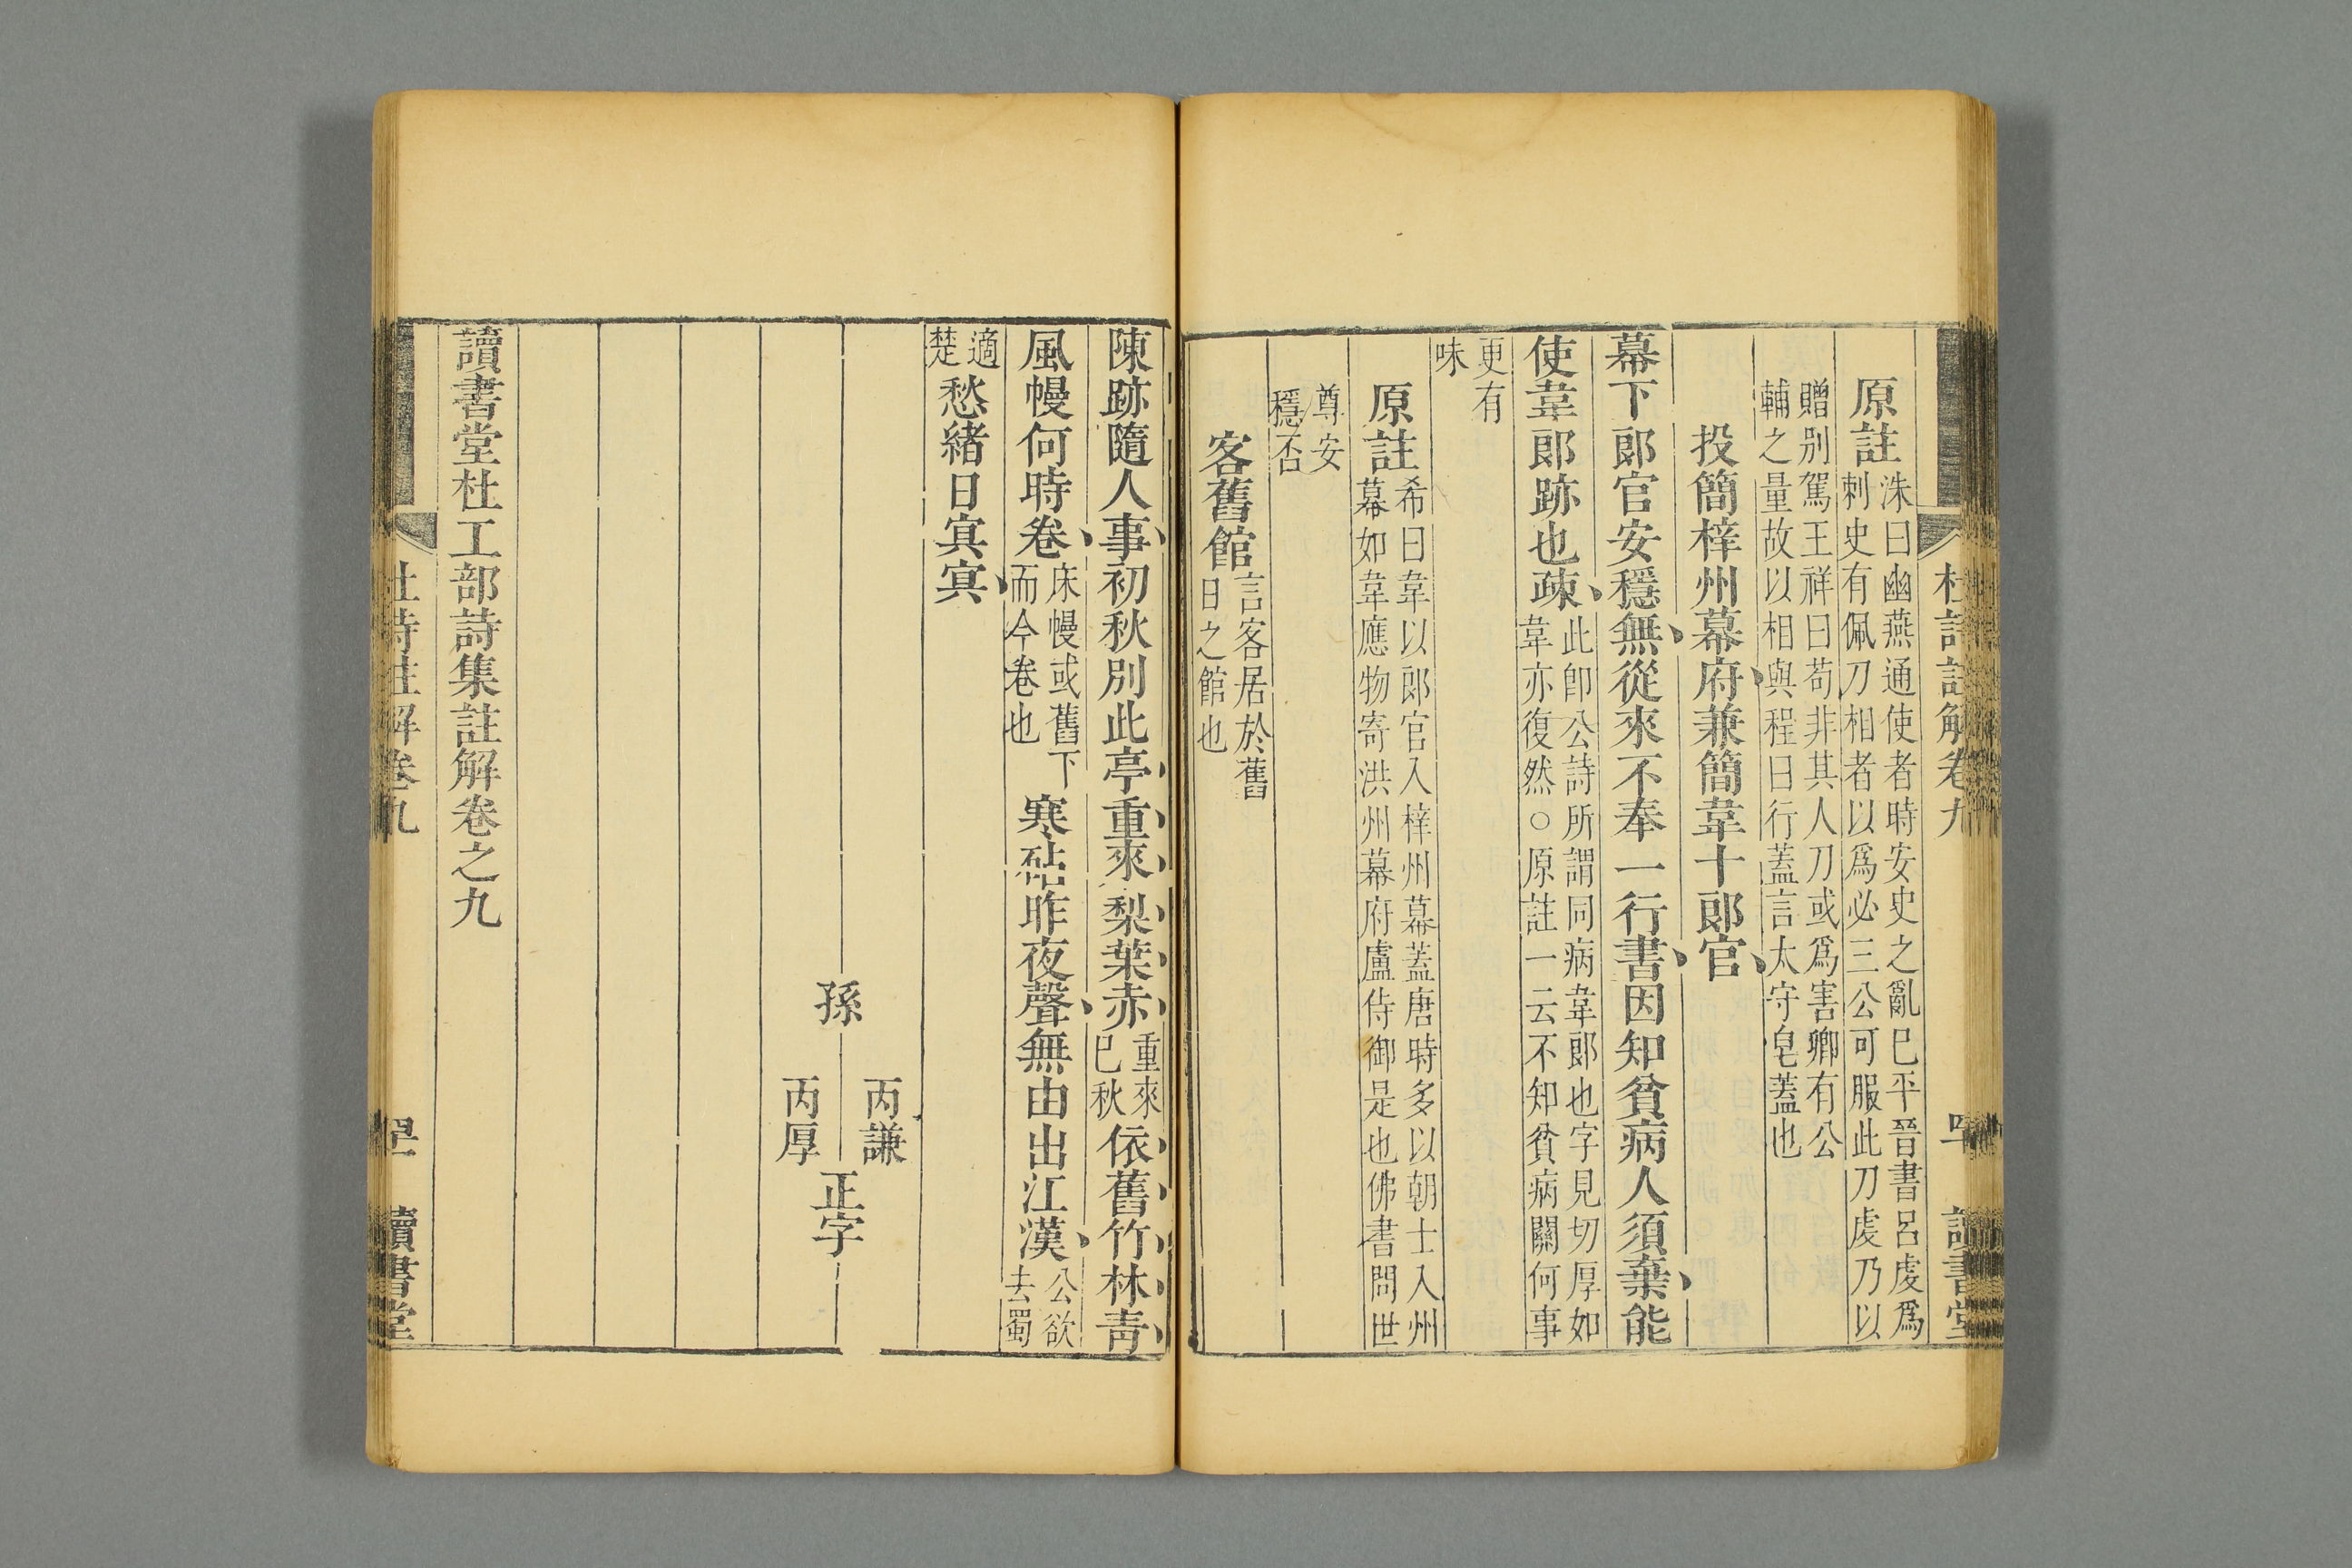 杜詩註解卷九
讀書堂
原註洙曰幽燕通使者時安史之亂巳平晉書呂虔爲
刺史有佩刀相者以爲必三公可服此刀虔乃以
贈別駕王祥曰苟非其人刀或爲害卿有公
輔之量故以相與程曰行蓋言太守皂蓋也
投簡梓州幕府兼簡韋十郎官
幕下郎官安穩無從來不奉一行書因知貧病人須棄能
使韋郎跡也疎此卽公詩所謂同病韋郎也字見切厚如
韋亦復然○原註一云不知貧病關何事
更有
味
原註希曰韋以郎官入梓州幕蓋唐時多以朝士入州
幕如韋應物寄洪州幕府盧侍御是也佛書問世
尊安
穩否
客舊館言客居於舊
日之館也
陳跡隨人事初秋別此亭重來梨葉赤重來
巳秋依舊竹林靑
風幔何時卷床幔或舊下
而今卷也寒砧昨夜聲無由出江漢公欲
去蜀
適
楚愁緒日寘寘
丙謙
孫 正字
丙厚
讀書堂杜工部詩集註解卷之九
杜詩註解卷九
讀書堂